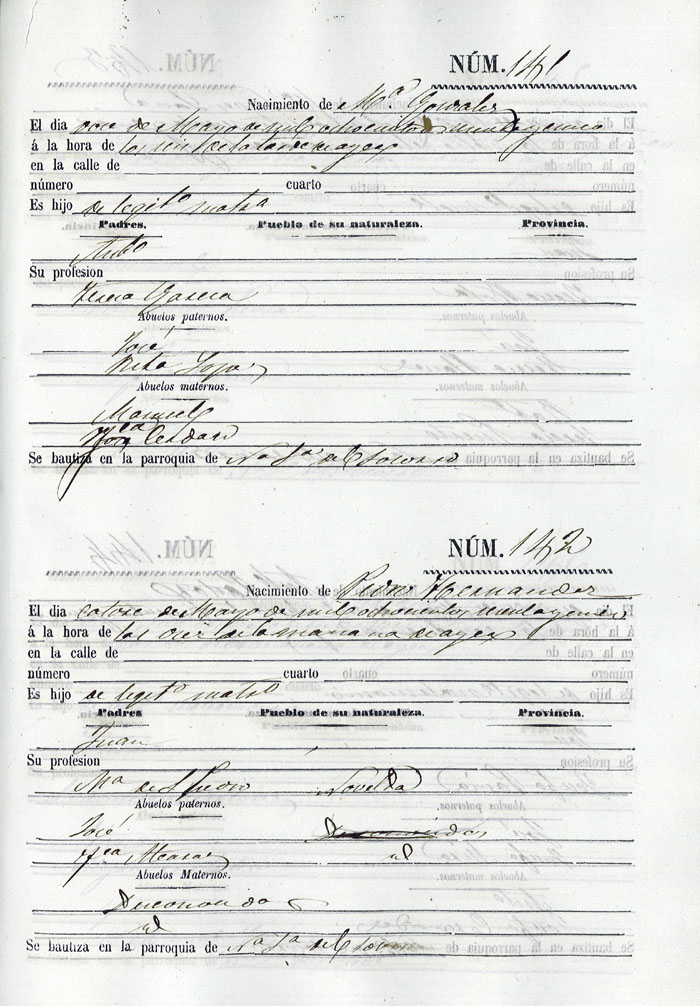 NÚM. 141
Nacimiento de Mª Gonzales
El dia once de Mayo de mil ochocientos
á la hora de las seis de la tarde de ayer
en la calle de
número cuarto
Es hijo de legitº matrº
Padres. Pueblo de su naturaleza. Provincia.
Antº
Su profesion
Teresa Garcia
Abuelos paternos.
José
Rita
Abuelos maternos.
Manuel
Se bautiza en la parroquia de Nª Sª del Socorro
NÚM. 142
Nacimiento de Pedro Hernandez
El dia catorce de Mayo de mil ochocientos
á la hora de las diez de la mañana de ayer
en la calle de
número cuarto
Es hijo de legitº matrº
Padres Pueblo de su naturaleza. Provincia.
Juan
Su profesion
Mª de S. Pedro Novelda
Abuelos paternos.
José
Fca id
Abuelos Maternos.
Desconocido
id
Se bautiza en la parroquia de Nª Sª del Socorro